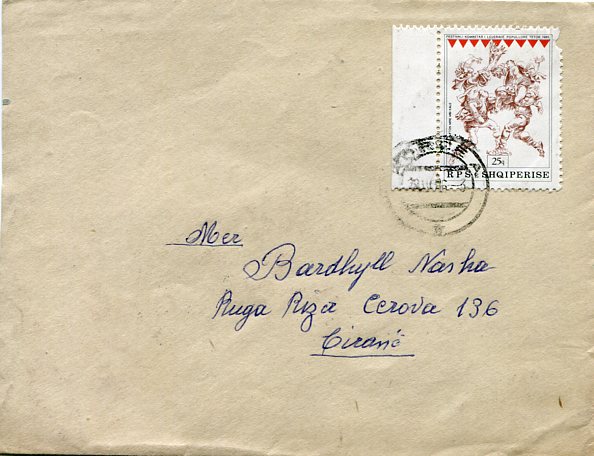 FESTIVALI KOMBETAR I LOJERAVE POPULLORE
25q
RPS E SHQIPERISE
Mer
Bardhyll Nasha
Ruga Riza Cerova 136
Tiranë